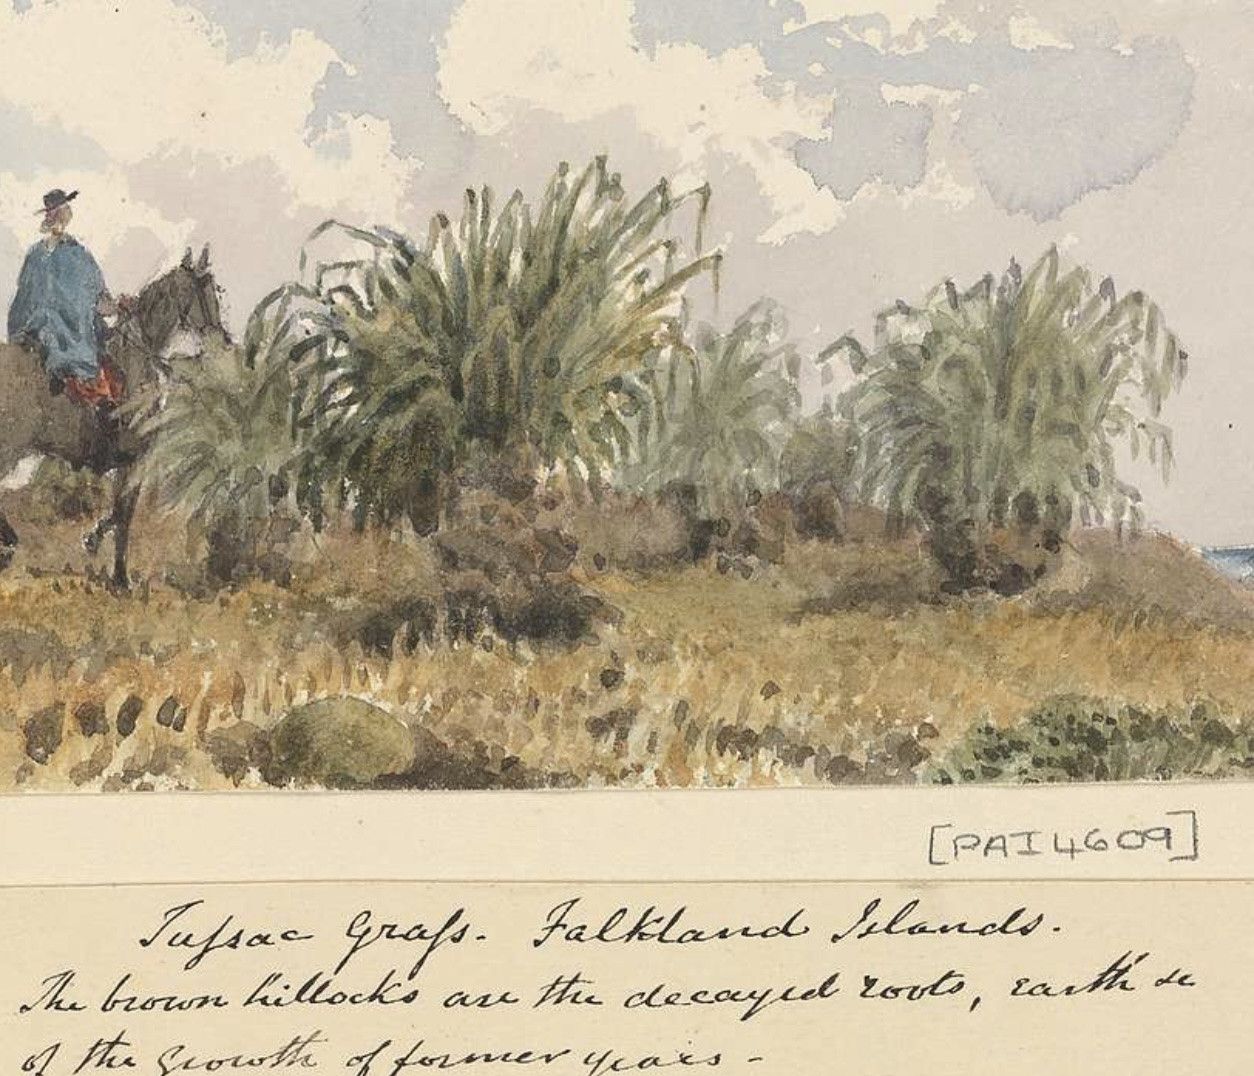 [PAI4609]
Tussac Grass. Falkland Islands.
The brown hillocks are the decayed roots, earth &c
of the Growth of former years -